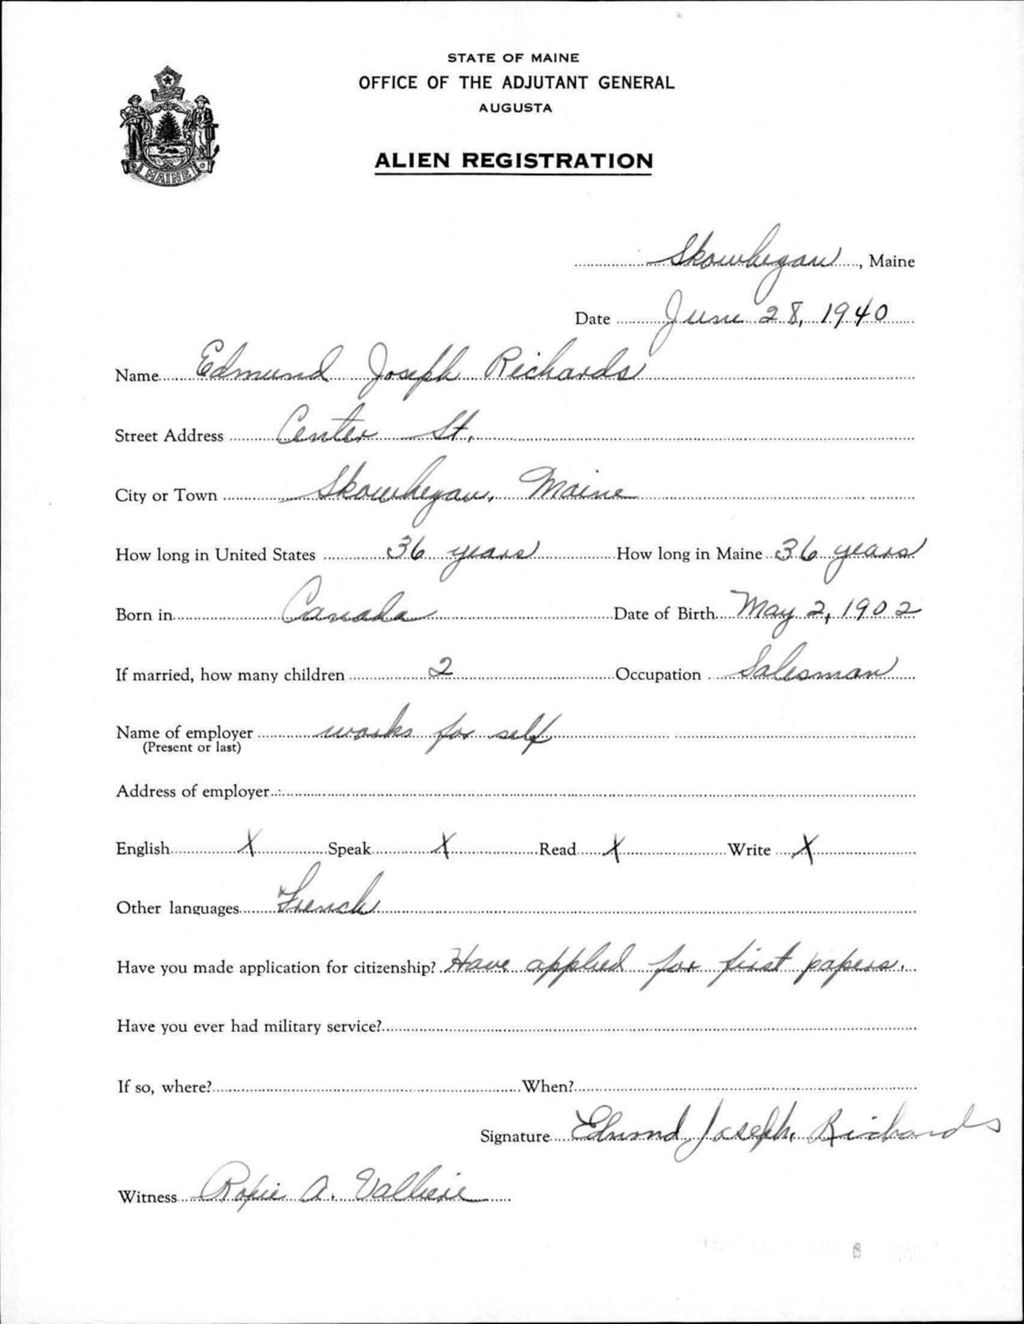 STATE OF MAINE
OFFICE OF THE ADJUTANT GENERAL
AUGUSTA
ALIEN REGISTRATION
MAINE
Skowhegan, Maine
Date June 28, 1940
Name Edmund Joseph Richards
Street Address Center St.
City or Town Skowhegan, Maine
How long in United States 36 years How long in Maine 36 years
Born in Canada Date of Birth May 2, 1902
If married, how many children 2 Occupation Salesman
Name of employer works for self
(Present or last)
Address of employer
English X Speak X Read X Write X
Other languages French
Have you made application for citizenship? Have applied for first papers.
Have you ever had military service?
If so, where? When?
Signature Edmund Joseph Richards
Witness A. Valliere